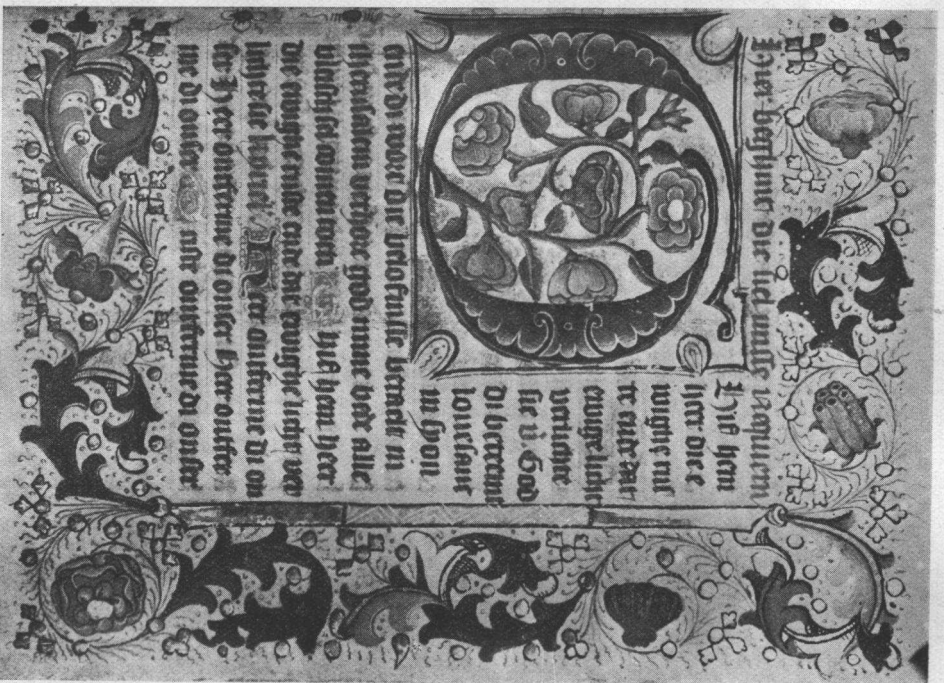 Hier beghinnet die siel misse Requiem
Ghif hem
heer die e
wighe rus
te ende dat
ewighe licht
verlichte
se v̄. God
di betaemt
louesanc
in syon
ende di wort die belofnisse betaelt in
iherusalem verhore god mine bede alle
vleisch sel comen toten Ghif hem heer
die ewighe ruste ende dat ewighe licht ver
lichte se Heer ontferme di on
ser Heer ontferme di onser heer ontfer
me di onser ontferme di onser